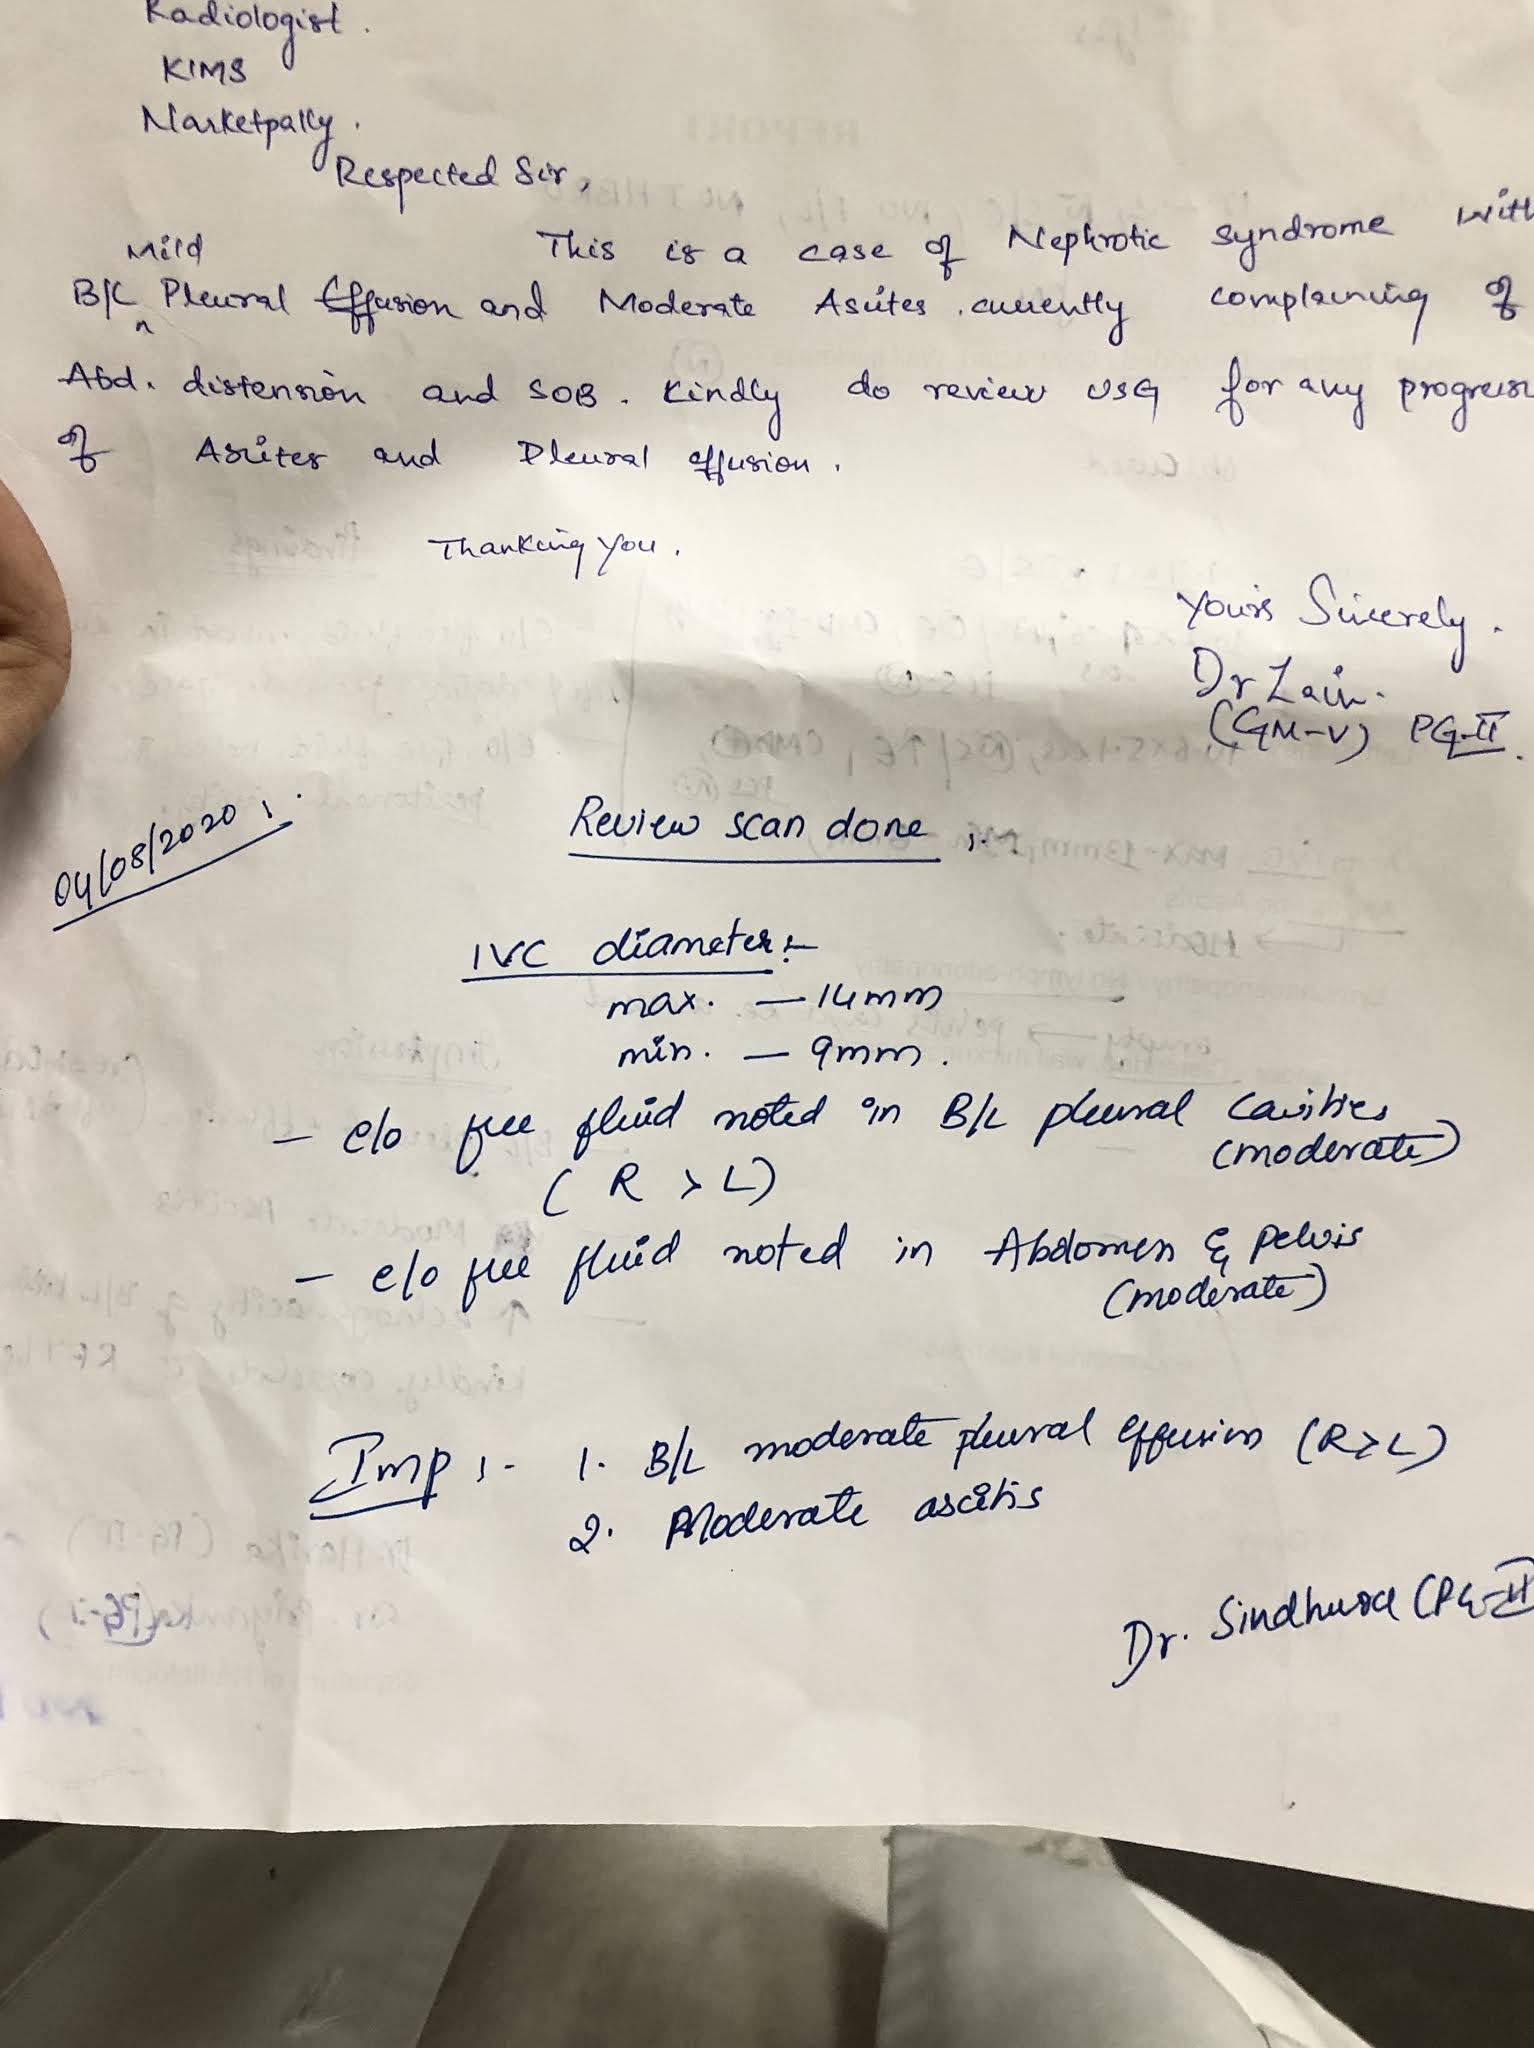 Radiologist.
KIMS
Narketpally.
Respected Sir,
This is a case of Nephrotic syndrome with
Mild
B/L ^ Pleural Effusion and Moderate Asites. currently complaining of
Abd. distension and SOB. Kindly do review USG for any progress
of Asites and Pleural effusion.
Thanking you.
Yours Sincerely.
Dr Zain.
(GM-V) PG-II.
04/08/2020 :
Review scan done :-
IVC diameter :-
max. - 14mm
min. - 9mm.
- e/o free fluid noted in B/L pleural cavities
(moderate)
(R > L)
- e/o free fluid noted in Abdomen & pelvis
(moderate)
Imp :- 1. B/L moderate pleural effusion (R>L)
2. Moderate ascitis
Dr. Sindhura (PG-II